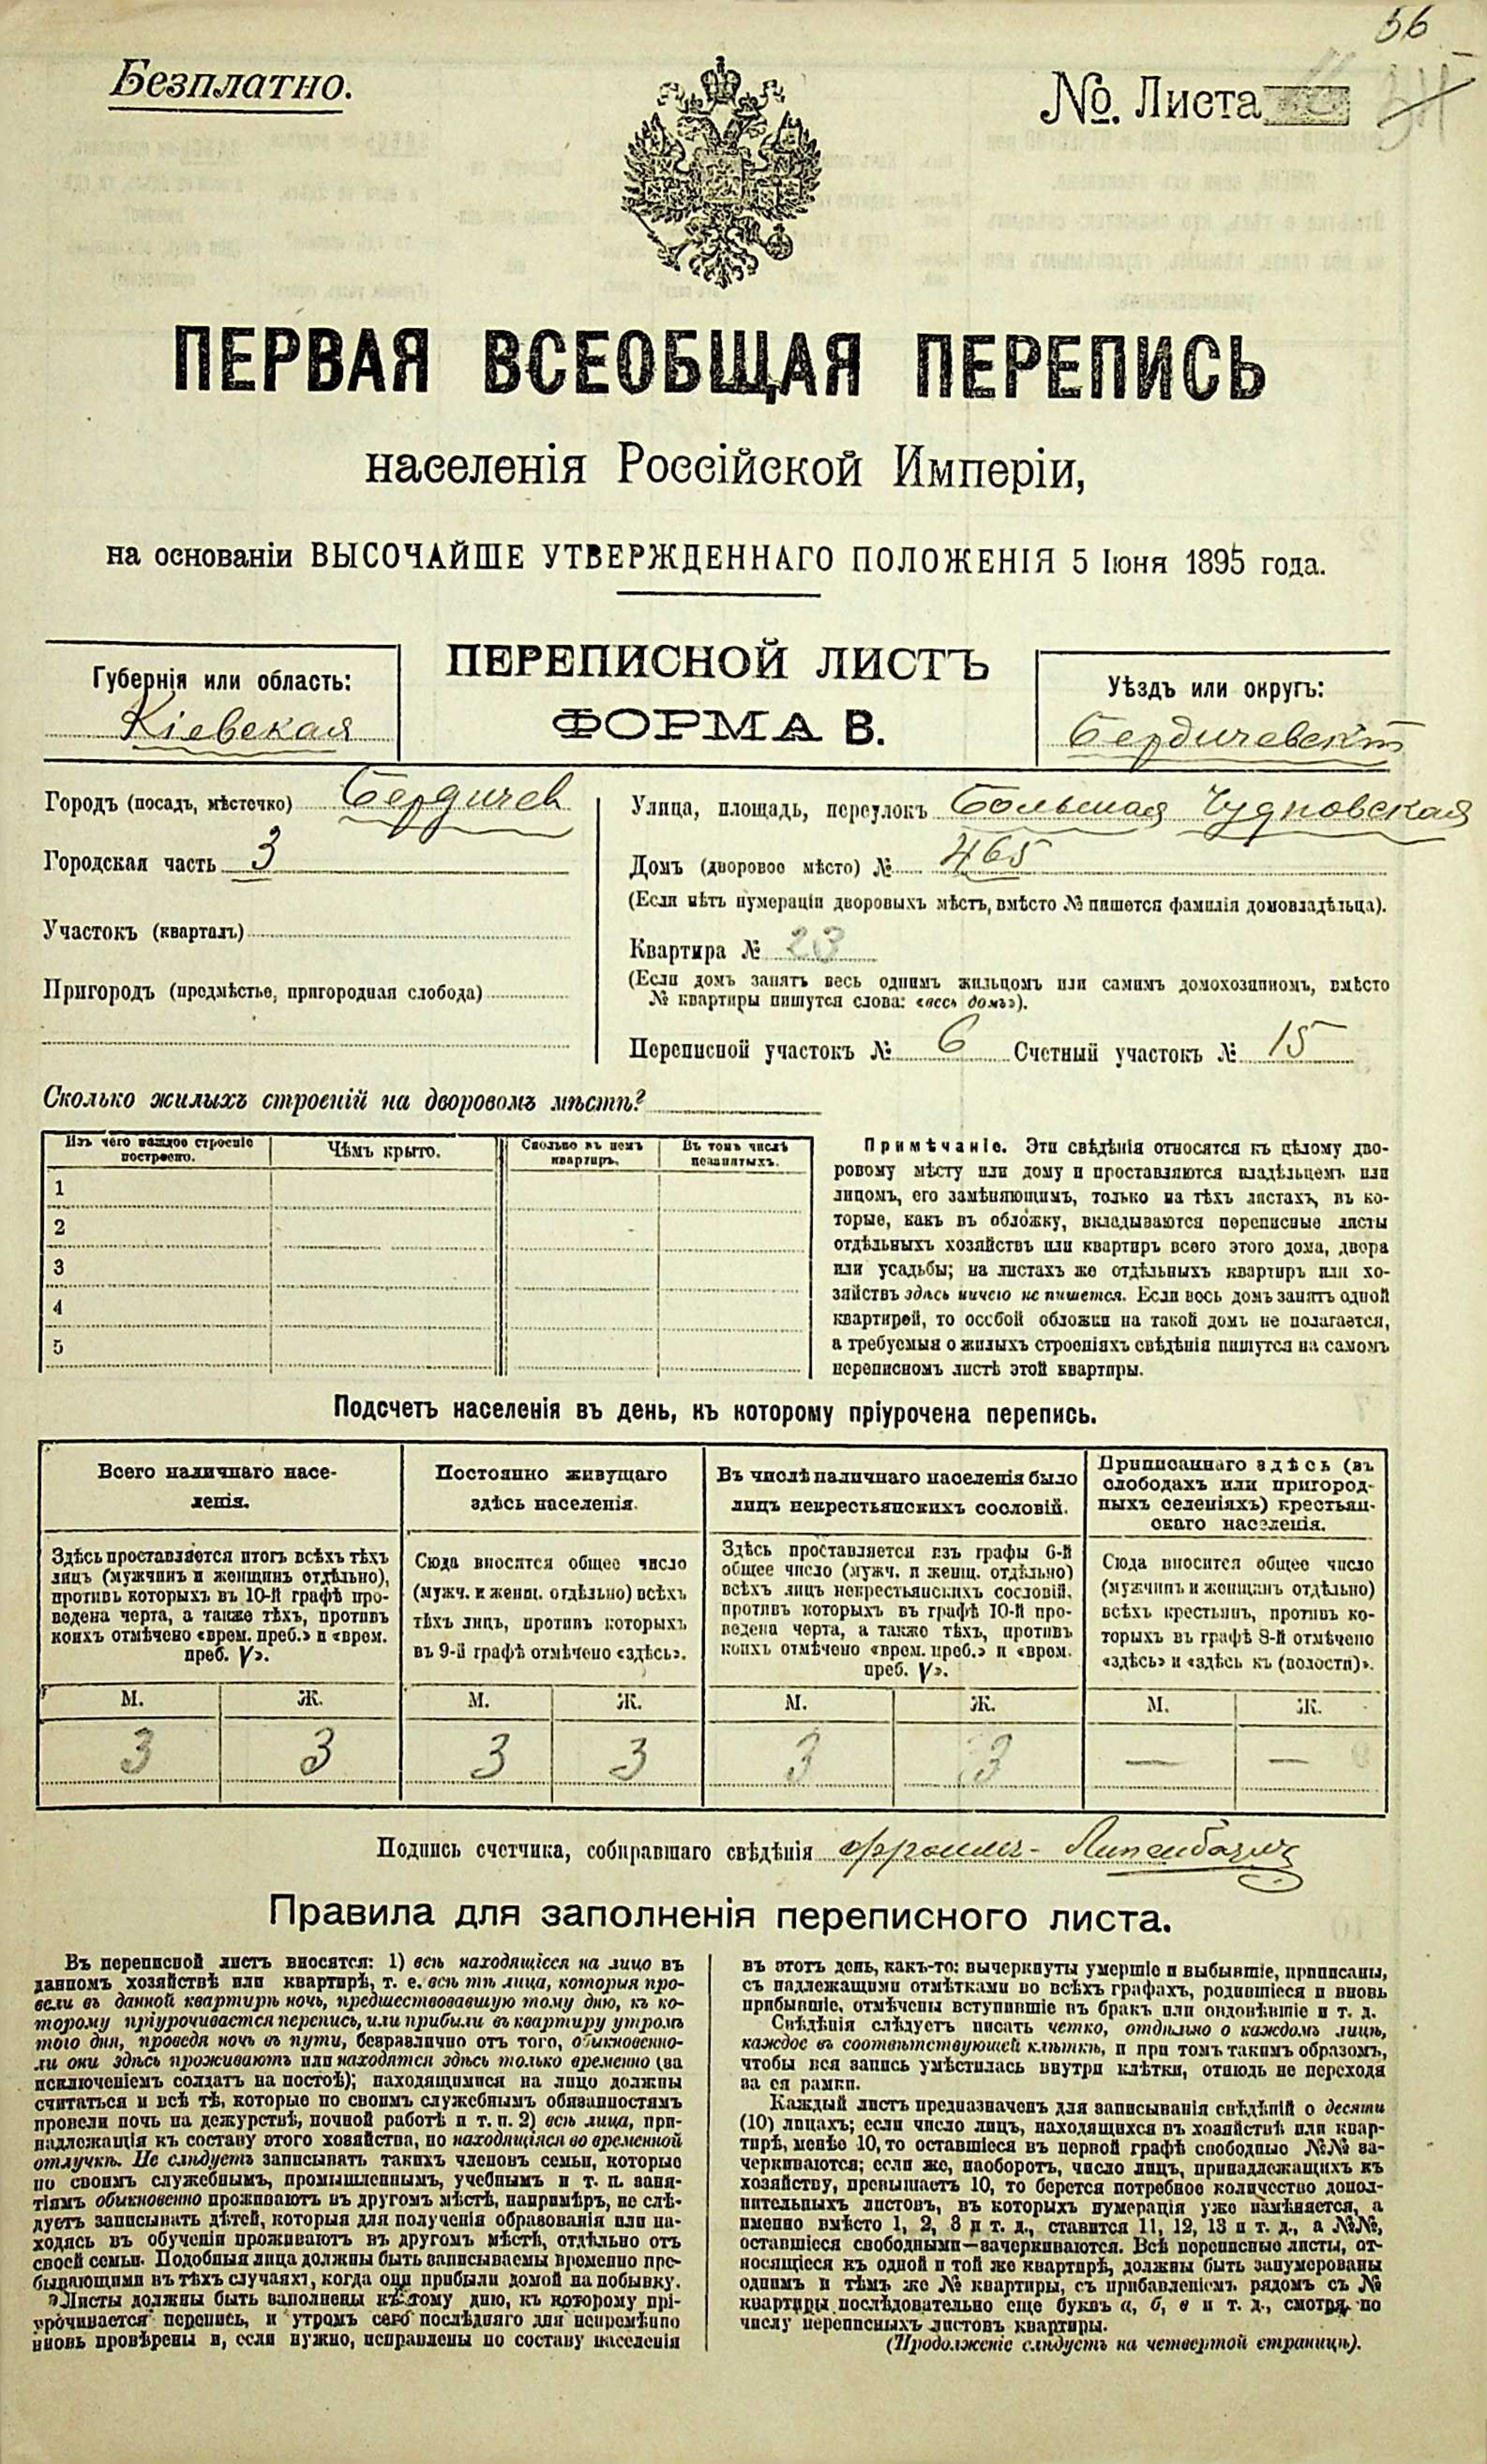 56
Безплатно.
№. Листа
ПЕРВАЯ ВСЕОБЩАЯ ПЕРЕПИСЬ
населенія Россійской Имперіи,
на основаніи ВЫСОЧАЙШЕ УТВЕРЖДЕННАГО ПОЛОЖЕНІЯ 5 Іюня 1895 года.
Губернія или область:
Кіевская
ПЕРЕПИСНОЙ ЛИСТЪ
ФОРМА В.
Уѣздъ или округъ:
Бердичевскій
Городъ (посадъ, мѣстечко) Бердичев
Городская часть 3
Участокъ (кварталъ)
Пригородъ (предмѣстье, пригородная слобода)
Улица, площадь, переулокъ Большая Чудновская
Домъ (дворовое мѣсто) № 465
(Если нѣтъ нумераціи дворовыхъ мѣстъ, вмѣсто № пишется фамилія домовладѣльца).
Квартира № 23
(Если домъ занятъ весь однимъ жильцомъ или самимъ домохозяиномъ, вмѣсто
№ квартиры пишутся слова: «весь домъ»).
Переписной участокъ № 6 Счетный участокъ № 15
Сколько жилыхъ строеній на дворовомъ мѣстѣ?
Изъ чего каждое строеніе
построено.
Чѣмъ крыто.
Сколько въ немъ
квартиръ.
Въ томъ числѣ
незанятыхъ.
1
2
3
4
5
Примѣчаніе. Эти свѣдѣнія относятся къ цѣлому дво-
ровому мѣсту или дому и проставляются владѣльцемъ или
лицомъ, его замѣняющимъ, только на тѣхъ листахъ, въ ко-
торые, какъ въ обложку, вкладываются переписные листы
отдѣльныхъ хозяйствъ или квартиръ всего этого дома, двора
или усадьбы; на листахъ же отдѣльныхъ квартиръ или хо-
зяйствъ здѣсь ничего не пишется. Если весь домъ занятъ одной
квартирой, то особой обложки на такой домъ не полагается,
а требуемыя о жилыхъ строеніяхъ свѣдѣнія пишутся на самомъ
переписномъ листѣ этой квартиры.
Подсчетъ населенія въ день, къ которому пріурочена перепись.
Всего наличнаго насе-
ленія.
Здѣсь проставляется итогъ всѣхъ тѣхъ
лицъ (мужчинъ и женщинъ отдѣльно),
противъ которыхъ въ 10-й графѣ про-
ведена черта, а также тѣхъ, противъ
коихъ отмѣчено «врем. преб.» и «врем.
преб. V».
Постоянно живущаго
здѣсь населенія.
Сюда вносится общее число
(мужч. и женщ. отдѣльно) всѣхъ
тѣхъ лицъ, противъ которыхъ
въ 9-й графѣ отмѣчено «здѣсь».
Въ числѣ наличнаго населенія было
лицъ некрестьянскихъ сословій.
Здѣсь проставляется изъ графы 6-й
общее число (мужч. и женщ. отдѣльно)
всѣхъ лицъ некрестьянскихъ сословій,
противъ которыхъ въ графѣ 10-й про-
ведена черта, а также тѣхъ, противъ
коихъ отмѣчено «врем. преб.» и «врем.
преб. V».
Приписаннаго здѣсь (въ
слободахъ или пригород-
ныхъ селеніяхъ) крестьян-
скаго населенія.
Сюда вносится общее число
(мужчинъ и женщинъ отдѣльно)
всѣхъ крестьянъ, противъ ко-
торыхъ въ графѣ 8-й отмѣчено
«здѣсь» и «здѣсь къ (волости)».
М. Ж. М. Ж. М. Ж. М. Ж.
3 3 3 3 3 3 — —
Подпись счетчика, собиравшаго свѣдѣнія
Правила для заполненія переписного листа.
Въ переписной листъ вносятся: 1) всѣ находящіеся на лицо въ
данномъ хозяйствѣ или квартирѣ, т. е. всѣ тѣ лица, которыя про-
вели въ данной квартирѣ ночь, предшествовавшую тому дню, къ ко-
торому пріурочивается перепись, или прибыли въ квартиру утромъ
того дня, проведя ночь въ пути, безразлично отъ того, обыкновенно-
ли они здѣсь проживаютъ или находятся здѣсь только временно (за
исключеніемъ солдатъ на постоѣ); находящимися на лицо должны
считаться и всѣ тѣ, которые по своимъ служебнымъ обязанностямъ
провели ночь на дежурствѣ, ночной работѣ и т. п. 2) всѣ лица, при-
надлежащія къ составу этого хозяйства, но находящіяся во временной
отлучкѣ. Не слѣдуетъ записывать такихъ членовъ семьи, которые
по своимъ служебнымъ, промышленнымъ, учебнымъ и т. п. заня-
тіямъ обыкновенно проживаютъ въ другомъ мѣстѣ, напримѣръ, не слѣ-
дуетъ записывать дѣтей, которыя для полученія образованія или на-
ходясь въ обученіи проживаютъ въ другомъ мѣстѣ, отдѣльно отъ
своей семьи. Подобныя лица должны быть записываемы временно пре-
бывающими въ тѣхъ случаяхъ, когда они прибыли домой на побывку.
Листы должны быть заполнены къ тому дню, къ которому прі-
урочивается перепись, и утромъ сего послѣдняго дня непремѣнно
вновь провѣрены и, если нужно, исправлены по составу населенія
въ этотъ день, какъ-то: вычеркнуты умершіе и выбывшіе, приписаны,
съ надлежащими отмѣтками во всѣхъ графахъ, родившіеся и вновь
прибывшіе, отмѣчены вступившіе въ бракъ или овдовѣвшіе и т. д.
Свѣдѣнія слѣдуетъ писать четко, отдѣльно о каждомъ лицѣ,
каждое въ соотвѣтствующей клѣткѣ, и при томъ такимъ образомъ,
чтобы вся запись умѣстилась внутри клѣтки, отнюдь не переходя
за ея рамки.
Каждый листъ предназначенъ для записыванія свѣдѣній о десяти
(10) лицахъ; если число лицъ, находящихся въ хозяйствѣ или квар-
тирѣ, менѣе 10, то оставшіеся въ первой графѣ свободные №№ за-
черкиваются; если же, наоборотъ, число лицъ, принадлежащихъ къ
хозяйству, превышаетъ 10, то берется потребное количество допол-
нительныхъ листовъ, въ которыхъ нумерація уже измѣняется, а
именно вмѣсто 1, 2, 3 и т. д., ставится 11, 12, 13 и т. д., а №№,
оставшіеся свободными—зачеркиваются. Всѣ переписные листы, от-
носящіеся къ одной и той же квартирѣ, должны быть занумерованы
однимъ и тѣмъ же № квартиры, съ прибавленіемъ рядомъ съ №
квартиры последовательно еще буквъ а, б, в и т. д., смотря по
числу переписныхъ листовъ квартиры.
(Продолженіе слѣдуетъ на четвертой страницѣ).